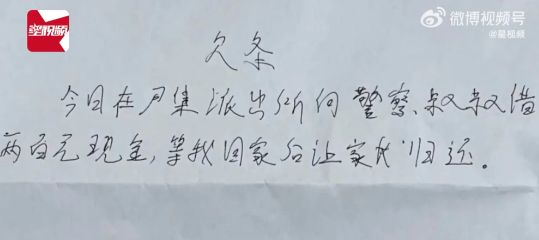 星视频
微博视频号
@星视频
欠条
今日在尹集派出所向警察叔叔借
两百元现金,等我回家后让家长归还。